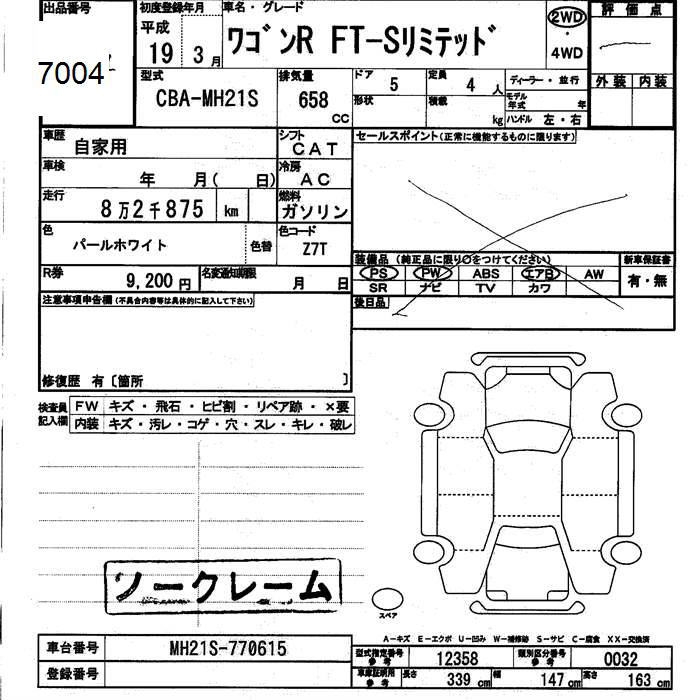 出品番号
7004
初度登録年月
平成
19 3月
車名・グレード
ワゴンR FT-Sリミテッド
2WD
・
4WD
評価点
外装 内装
型式
CBA-MH21S
排気量
658
CC
ドア
5
定員
4人
形状
積載
kg
ディーラー・並行
モデル年式 年
ハンドル 左・右
車歴
自家用
シフト
CAT
車検
年 月( 日)
冷房
AC
走行
8万2千875 km
燃料
ガソリン
色
パールホワイト
色替
色コード
Z7T
R券
9,200円
名変通知期限
月 日
セールスポイント(正常に機能するものに限ります)
装備品(純正品に限り○をつけてください)
PS PW ABS エアB AW
SR ナビ TV カワ
新車保証書
有・無
後日品
注意事項申告欄(不具合内容等は具体的に記入して下さい)
修復歴 有〔箇所 〕
検査員記入欄
FW キズ・飛石・ヒビ割・リペア跡・×要
内装 キズ・汚レ・コゲ・穴・スレ・キレ・破レ
ノークレーム
スペア
A-キズ E-エクボ U-凹み W-補修跡 S-サビ C-腐食 XX-交換済
車台番号
MH21S-770615
登録番号
型式指定番号
参考
12358
類別区分番号
参考
0032
車庫証明用
参考
長さ
339 cm
幅
147 cm
高さ
163 cm